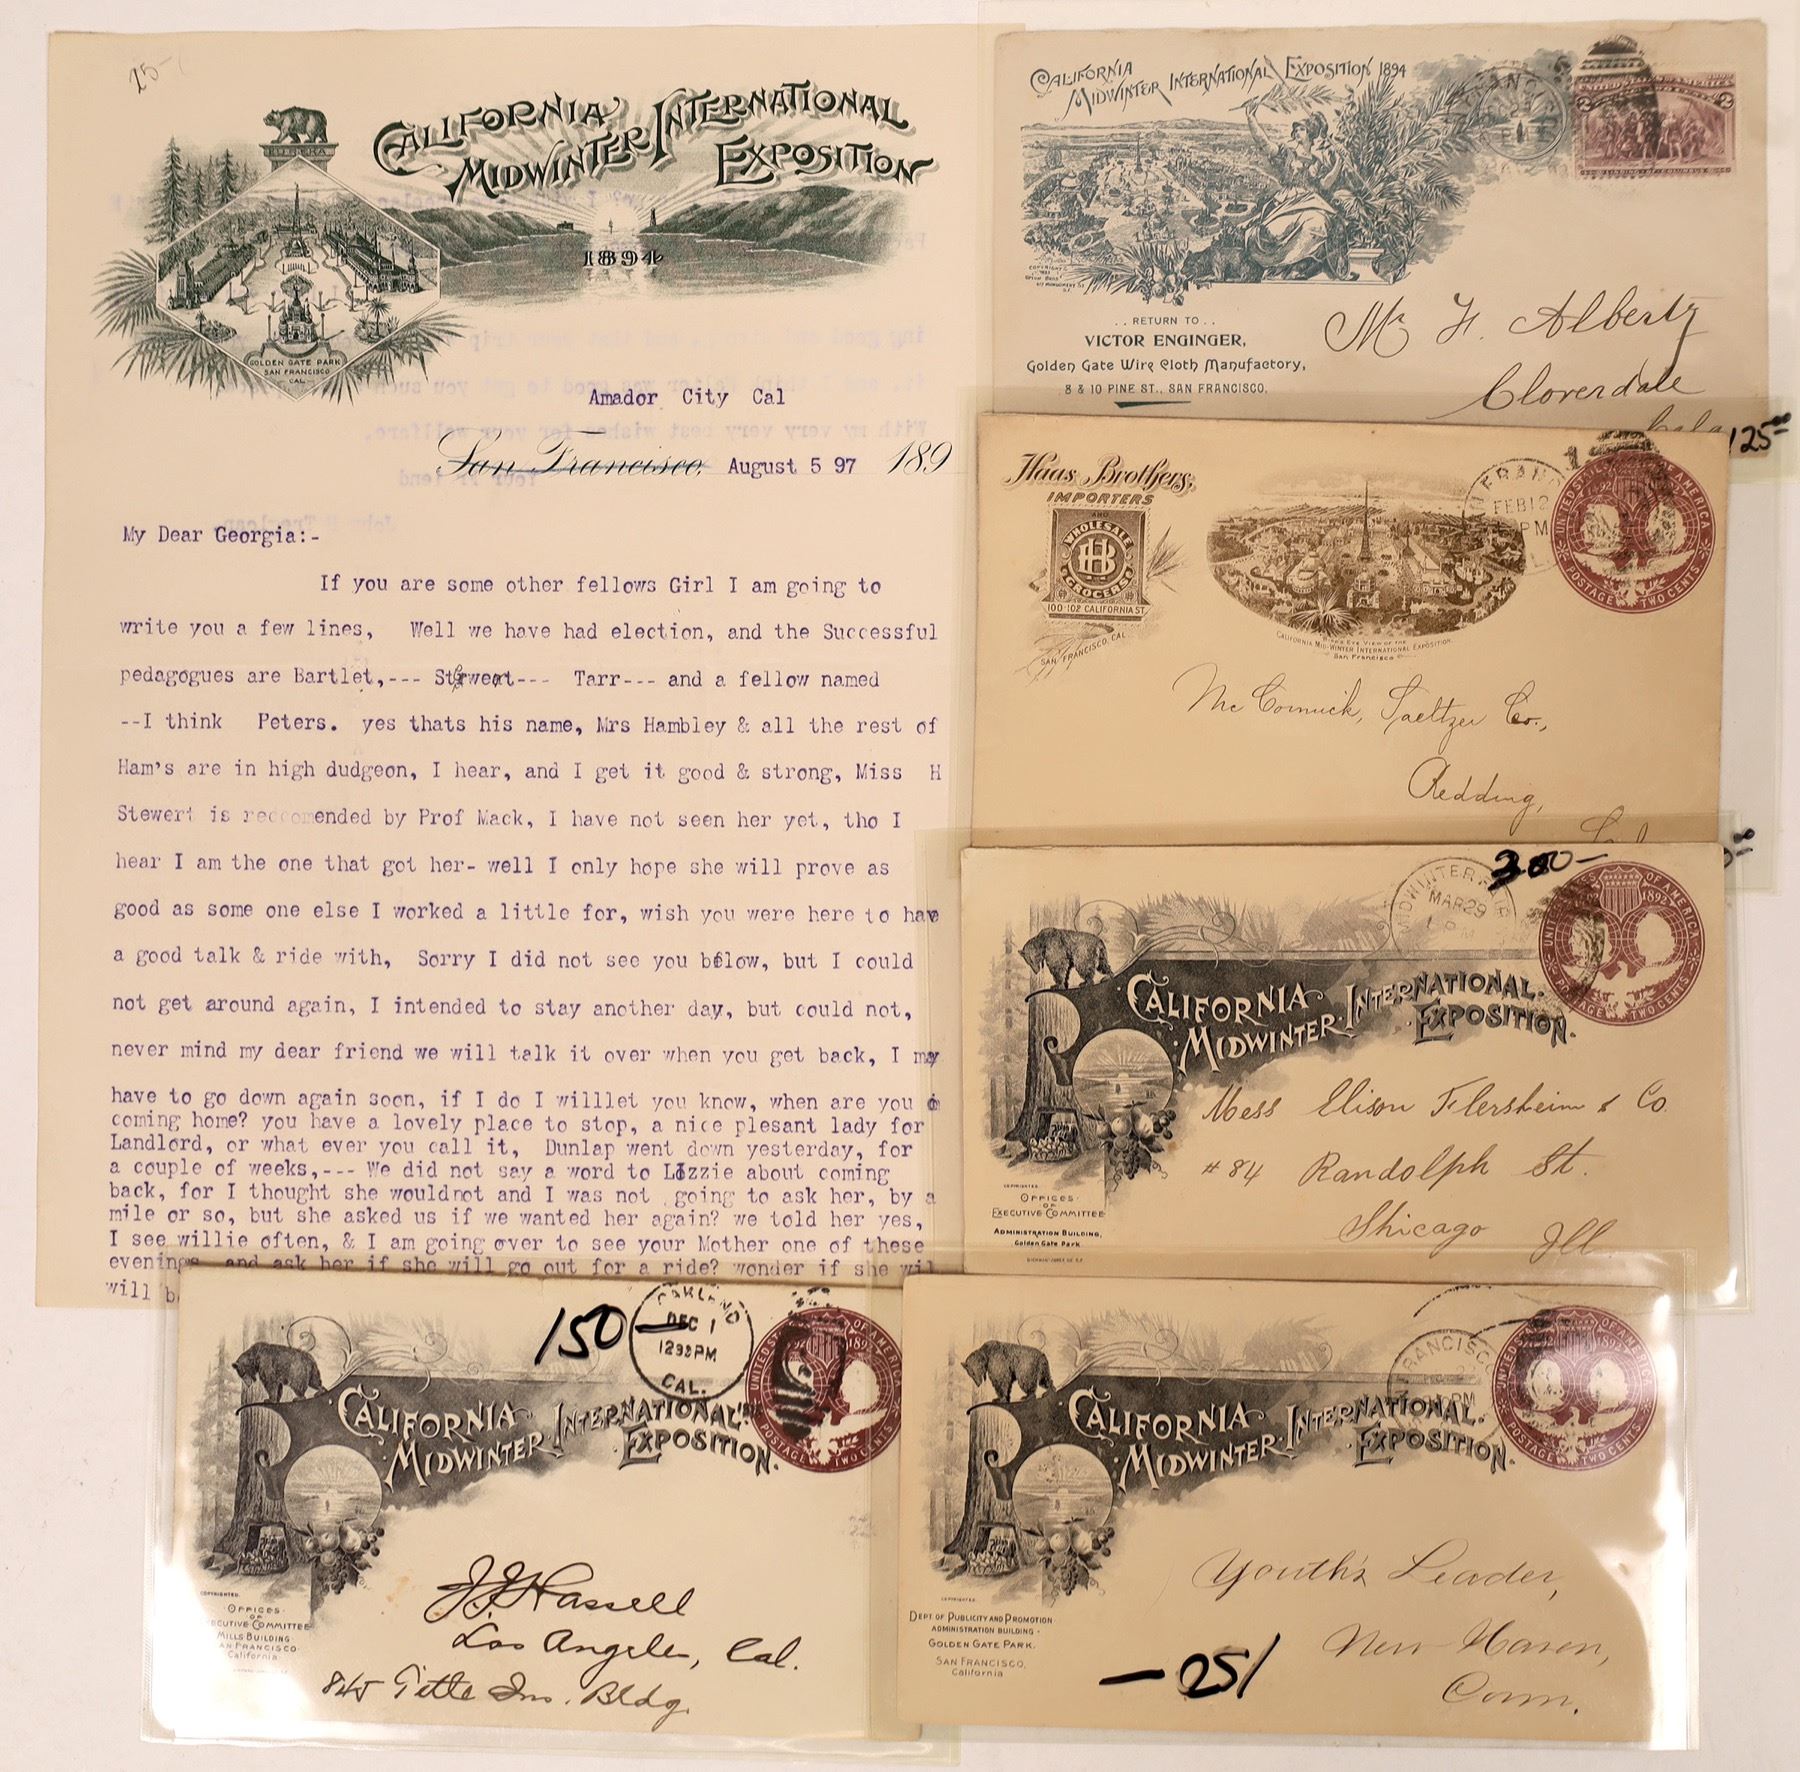 25-
EUREKA
CALIFORNIA
MIDWINTER INTERNATIONAL
EXPOSITION
1894
GOLDEN GATE PARK
SAN FRANCISCO
CAL
Amador City Cal
San Francisco, August 5 97 189
My Dear Georgia:-
If you are some other fellows Girl I am going to
write you a few lines, Well we have had election, and the Successful
pedagogues are Bartlet,--- Stewert--- Tarr--- and a fellow named
--I think Peters. yes thats his name, Mrs Hambley & all the rest of
Ham's are in high dudgeon, I hear, and I get it good & strong, Miss H
Stewert is reccomended by Prof Mack, I have not seen her yet, tho I
hear I am the one that got her- well I only hope she will prove as
good as some one else I worked a little for, wish you were here to have
a good talk & ride with, Sorry I did not see you below, but I could
not get around again, I intended to stay another day, but could not,
never mind my dear friend we will talk it over when you get back, I may
have to go down again soon, if I do I willlet you know, when are you
coming home? you have a lovely place to stop, a nice plesant lady for
Landlord, or what ever you call it, Dunlap went down yesterday, for
a couple of weeks,--- We did not say a word to Lizzie about coming
back, for I thought she wouldnot and I was not going to ask her, by a
mile or so, but she asked us if we wanted her again? we told her yes,
I see willie often, & I am going over to see your Mother one of these
evenings and ask her if she will go out for a ride? wonder if she wil
will b
CALIFORNIA
MIDWINTER INTERNATIONAL EXPOSITION 1894
COPYRIGHT
UNITED STATES OF AMERICA
LANDING OF COLUMBUS
.. RETURN TO ..
VICTOR ENGINGER,
Golden Gate Wire Cloth Manufactory,
8 & 10 PINE ST., SAN FRANCISCO.
Mr F. Albertz
Cloverdale
125.00
Haas Brothers,
IMPORTERS
AND
WHOLESALE
HB
GROCERS
100-102 CALIFORNIA ST.
SAN FRANCISCO, CAL.
BIRDS EYE VIEW OF THE
CALIFORNIA MID-WINTER INTERNATIONAL EXPOSITION.
San Francisco
FRAN
FEB 12
PM
UNITED STATES OF AMERICA
1492
POSTAGE TWO CENTS
Mc Cormick, Saeltzer Co.,
Redding,
Cal
300-
MIDWINTER FAIR
MAR 29
UNITED STATES OF AMERICA
1892
POSTAGE TWO CENTS
CALIFORNIA
MIDWINTER INTERNATIONAL
EXPOSITION.
COPYRIGHTED.
OFFICES
OF
EXECUTIVE COMMITTEE
ADMINISTRATION BUILDING,
Golden Gate Park
Mess Elison Flersheim & Co.
# 84 Randolph St.
Chicago Ill
150
OAKLAND
DEC 1
1230PM
CAL.
UNITED STATES OF AMERICA
1892
POSTAGE TWO CENTS
CALIFORNIA
MIDWINTER INTERNATIONAL
EXPOSITION.
COPYRIGHTED.
OFFICES
OF
EXECUTIVE COMMITTEE
MILLS BUILDING
SAN FRANCISCO
California
J.J. Hassell
Los Angeles, Cal.
845 Title Ins. Bldg.
FRANCISCO
PM
UNITED STATES OF AMERICA
1892
POSTAGE TWO CENTS
CALIFORNIA
MIDWINTER INTERNATIONAL
EXPOSITION.
COPYRIGHTED.
DEPT. OF PUBLICITY AND PROMOTION
ADMINISTRATION BUILDING
GOLDEN GATE PARK.
SAN FRANCISCO,
California
Youth's Leader,
New Haven,
Conn.
-025/